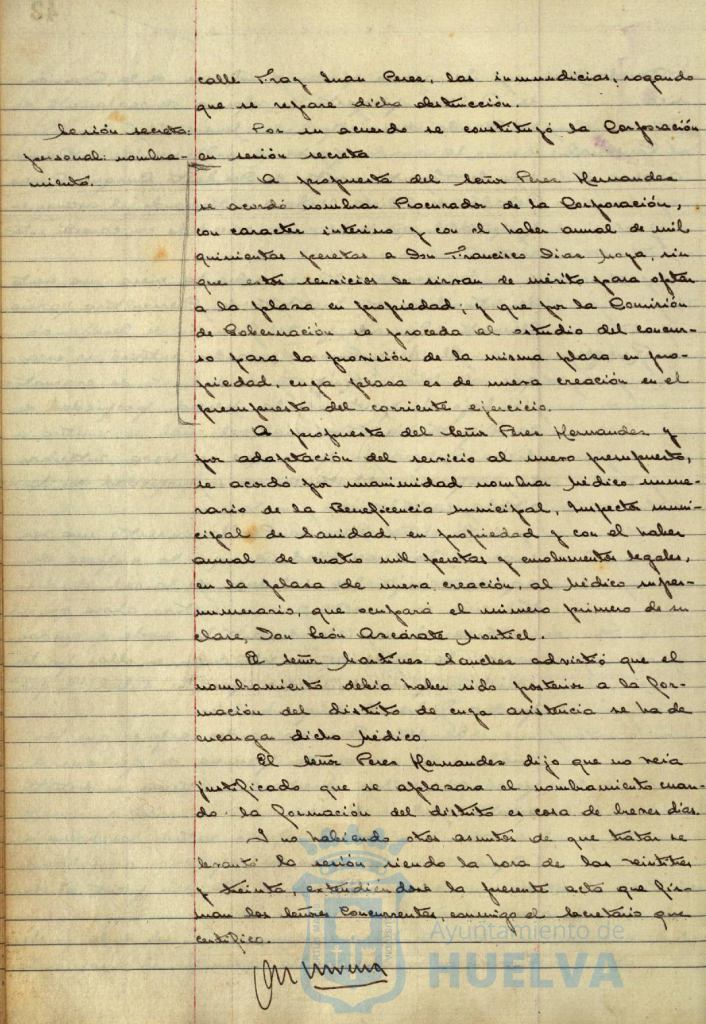 calle Fray Juan Perez, las inmundicias, rogando
que se repare dicha obstrucción.
Sesión secreta:
personal: nombra-
miento.
Por su acuerdo se constituyó la Corporación
en sesión secreta
A propuesta del Señor Perez Hernandez
se acordó nombrar Procurador de la Corporación,
con caracter interino y con el haber anual de mil
quinientas pesetas a Don Francisco Diaz Moya, sin
que estos servicios le sirvan de mérito para optar
a la plaza en propiedad; y que por la Comisión
de Gobernación se proceda al estudio del concur-
so para la provisión de la misma plaza en pro-
piedad, cuya plaza es de nueva creación en el
presupuesto del corriente ejercicio.
A propuesta del Señor Perez Hernandez y
por adaptación del servicio al nuevo presupuesto,
se acordó por unanimidad nombrar Médico nume-
rario de la Beneficencia Municipal, Inspector muni-
cipal de Sanidad, en propiedad y con el haber
anual de cuatro mil pesetas y emolumentos legales,
en la plaza de nueva creación, al Médico super-
numerario, que ocupará el número primero de su
clase, Don León Azcárate Montiel.
El Señor Martinez Sanchez advirtió que el
nombramiento debia haber sido posterior a la for-
mación del distrito de cuya asistencia se ha de
encargar dicho Médico.
El Señor Perez Hernandez dijo que no veia
justificado que se aplazara el nombramiento cuan-
do la formación del distrito es cosa de breves dias.
Y no habiendo otros asuntos de que tratar se
levantó la sesión siendo la hora de las veintitres
y treinta, extendiéndose la presente acta que fir-
man los Señores Concurrentes, conmigo el Secretario que
certifico.
Ayuntamiento de
HUELVA